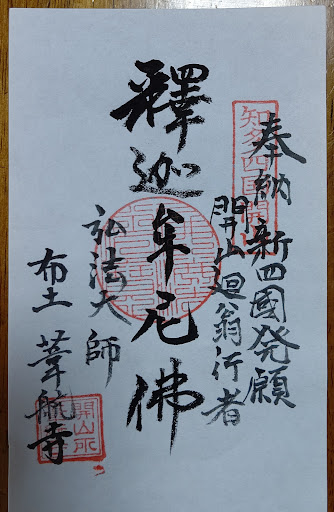 奉納新四國発願
開山廻翁行者
釋迦牟尼佛
弘法大師
布土 葦航寺
知多四国
開山所